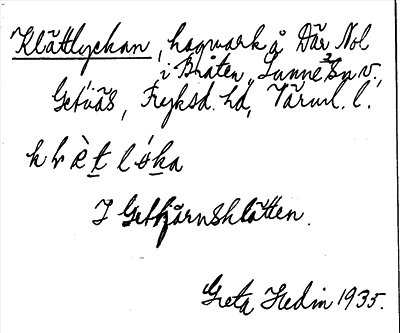 Klättlyckan, hagmark å Där Nol
i Bråten, Sunne Sn v.,
Getväs, Fryksd. hd, Värml. l.
I Getkjärnsklätten.
Greta Hedin 1935.